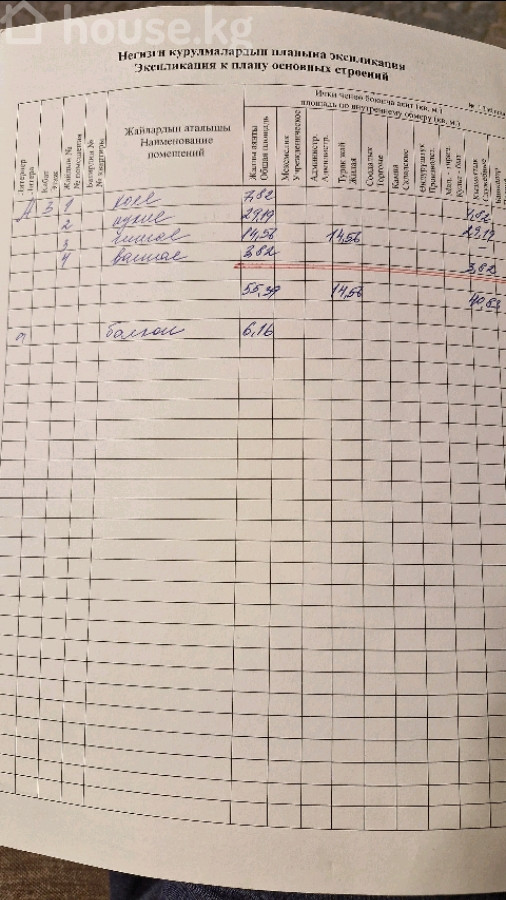 house.kg
Негизги курулмалардын планына экспликация
Экспликация к плану основных строений
Литерлер
Литера
Кабат
Этаж
Жайдын №
№ помещения
Батирдин №
№ квартиры
Жайлардын аталышы
Наименование
помещений
площадь по внутреннему обмеру (кв. м.)
Жалпы аянты
Общая площадь
Мекемелик
Учрежденическое
Администр.
Админстр.
Турак жай
Жилая
Соодалык
Торговые
Кампа
Складские
Өндүрүштүк
Производст.
Кызматтык
Служебные
А 3 1 7,82 7,82
2 кухня 29,19 29,19
3 жилая 14,56 14,56
4 ванная 3,82 3,82
55,39 14,56 40,83
балкон 6,16